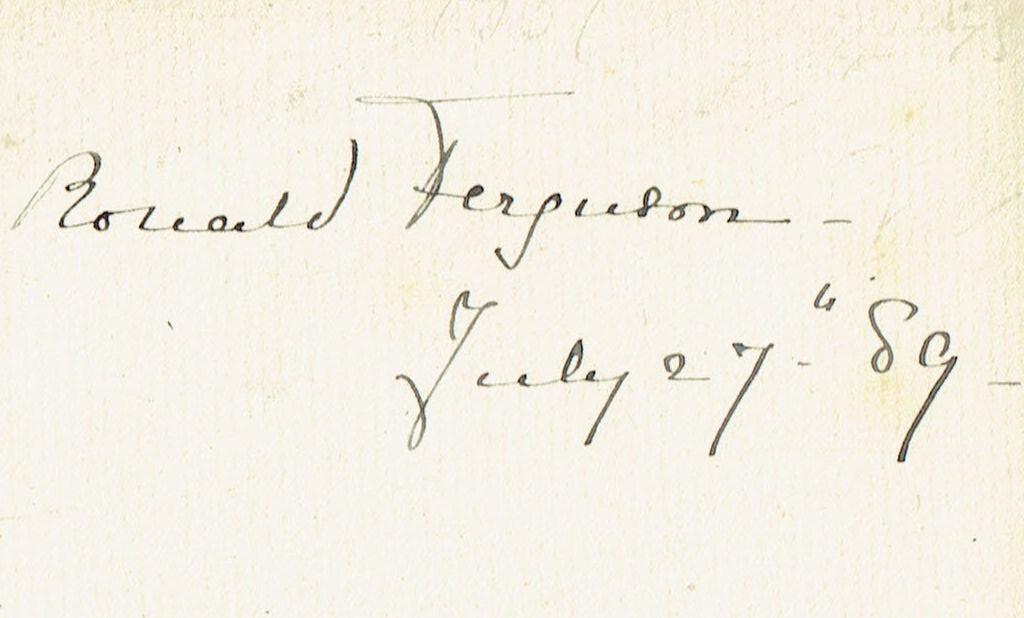 Ronald Ferguson -
July 27. " 89 -